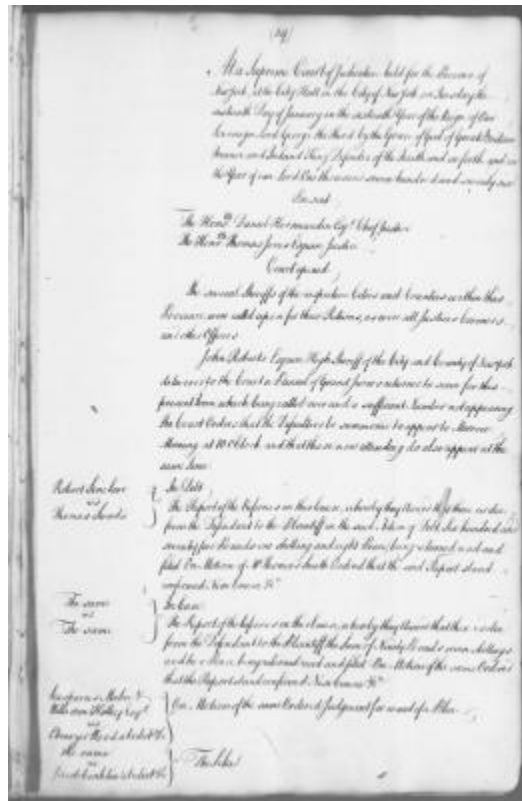 At a Supreme Court of Judicature held for the Province of
New York, at the City Hall in the City of New York on Tuesday the
sixteenth Day of January in the sixteenth Year of the Reign of Our
Sovereign Lord George the third by the Grace of God of Great Britain
France and Ireland King Defender of the Faith and so forth and in
the Year of our Lord One thousand seven hundred and seventy six
Present
The Honble Daniel Horsmanden Esqr Chief Justice
The Honble Thomas Jones Esquire Justice
Court opened
The several Sheriffs of the respective Cities and Counties within this
Province were called upon for their Returns, as were all Justices Coroners
and other Officers
John Roberts Esquire High Sheriff of the City and County of New York
delivered to the Court a Pannel of Grand Jurors returned to serve for this
present term which being called over and a sufficient Number not appearing
the Court Orders that the Defaulters be summoned to appear to Morrow
Morning at 10 OClock and that those now attending do also appear at the
same time
Robert Sinclair
vs
Thomas
In Debt
The Report of the Referees in this Cause, whereby they there is due
from the Defendant to the Plaintiff in the said of Debt hundred and
seventy five Pounds six shilling and eight Pence, being returned read and
filed On Motion of Mr Thomas Smith Ordered that the said Report stand
confirmed Nisi Causa &c
The same
vs
The same
In Case
The Report of the Referees in the Cause, whereby they that there is due
from the Defendant to the Plaintiff the Sum of Ninety and seven shillings
and Pence being returned read and filed On Motion of the same Ordered
that the Report stand confirmed Nisi Causa &c
&
William Esqrs
vs
On Motion of the same Ordered Judgment for want of a Plea
the same
vs
The like